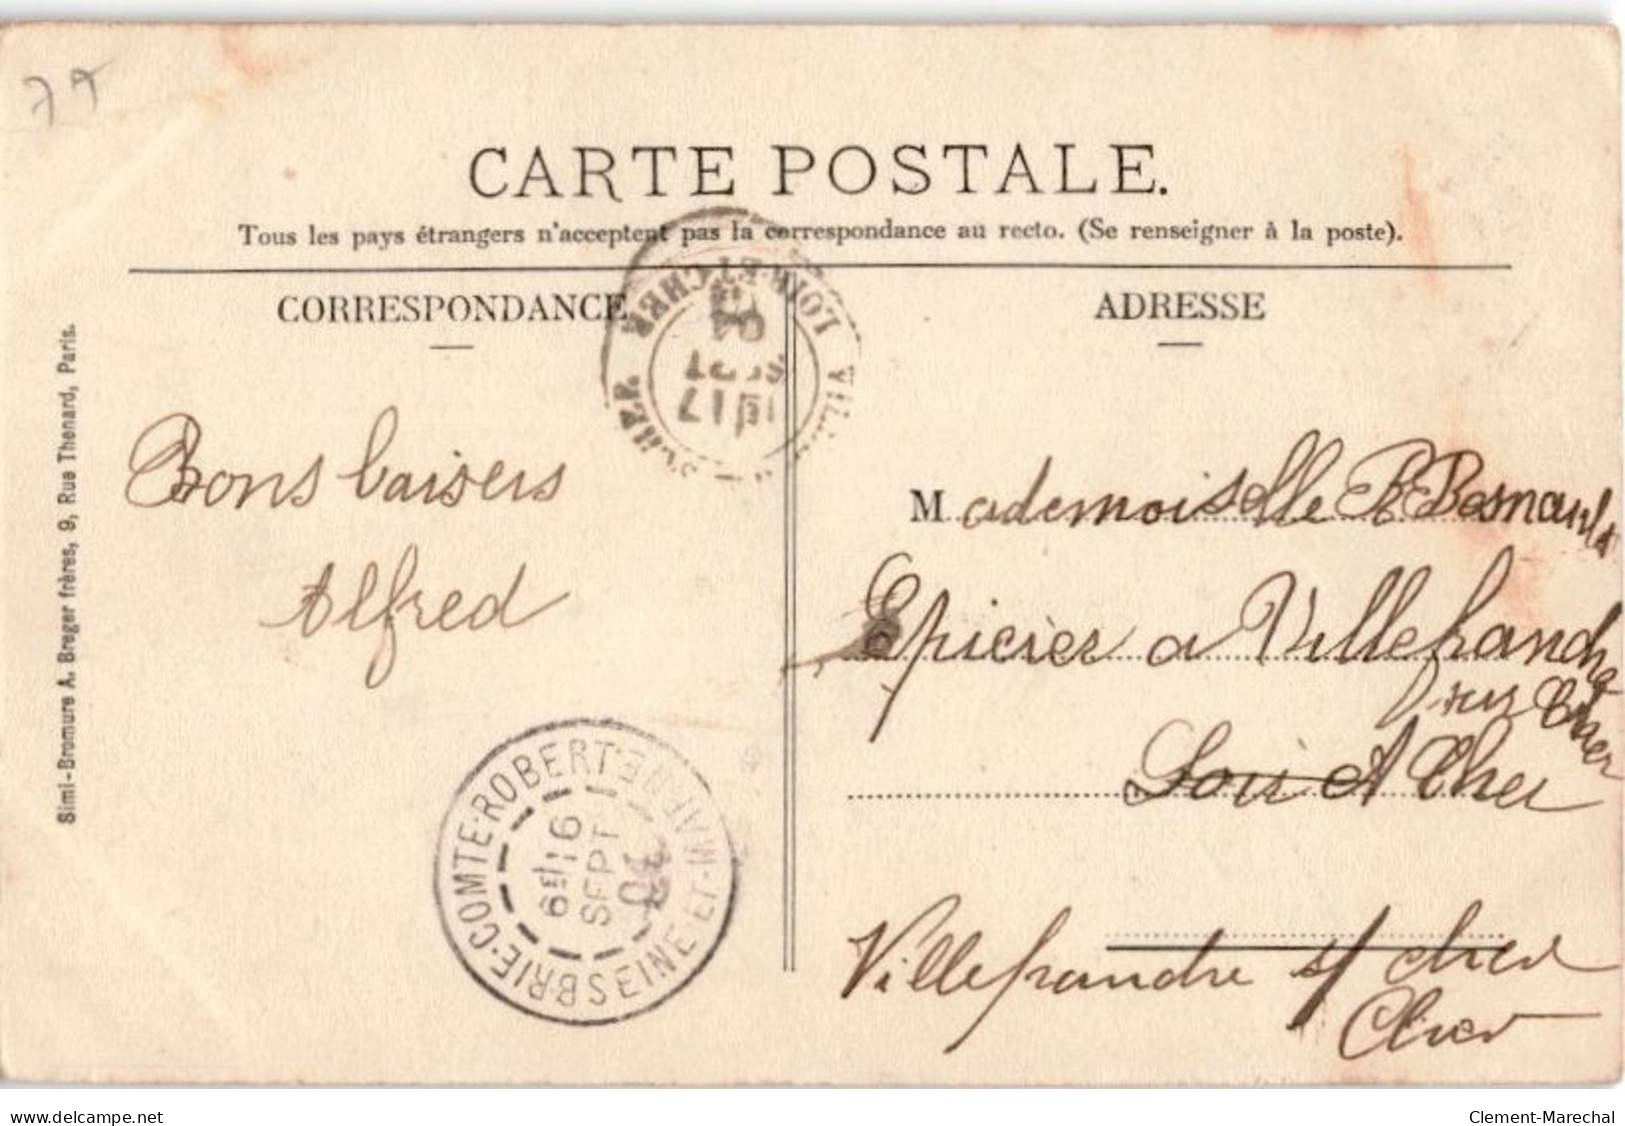 79
CARTE POSTALE.
Tous les pays étrangers n'acceptent pas la correspondance au recto. (Se renseigner à la poste).
CORRESPONDANCE
ADRESSE
Simi-Bromure A. Breger frères, 9, Rue Thenard, Paris.
LOIR-ET-CHER
Bons baisers
Alfred
Mademoiselle B Besnault
Epicier a Villefranche
sur Cher
Loir et Cher
BRIE-COMTE-ROBERT
SEINE-ET-MARNE
16
SEPT
04
Villefranche s/ cher
Cher
www.delcampe.net
Clement-Marechal